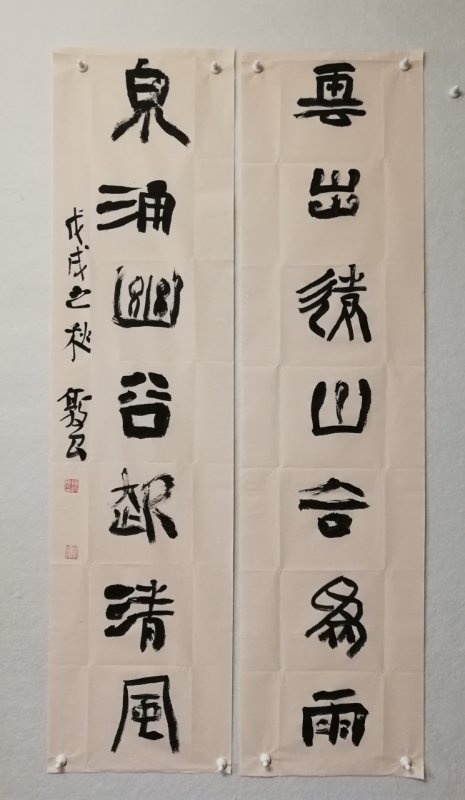 雲出後山合為雨
泉涌幽谷起清風
戊戌之秋